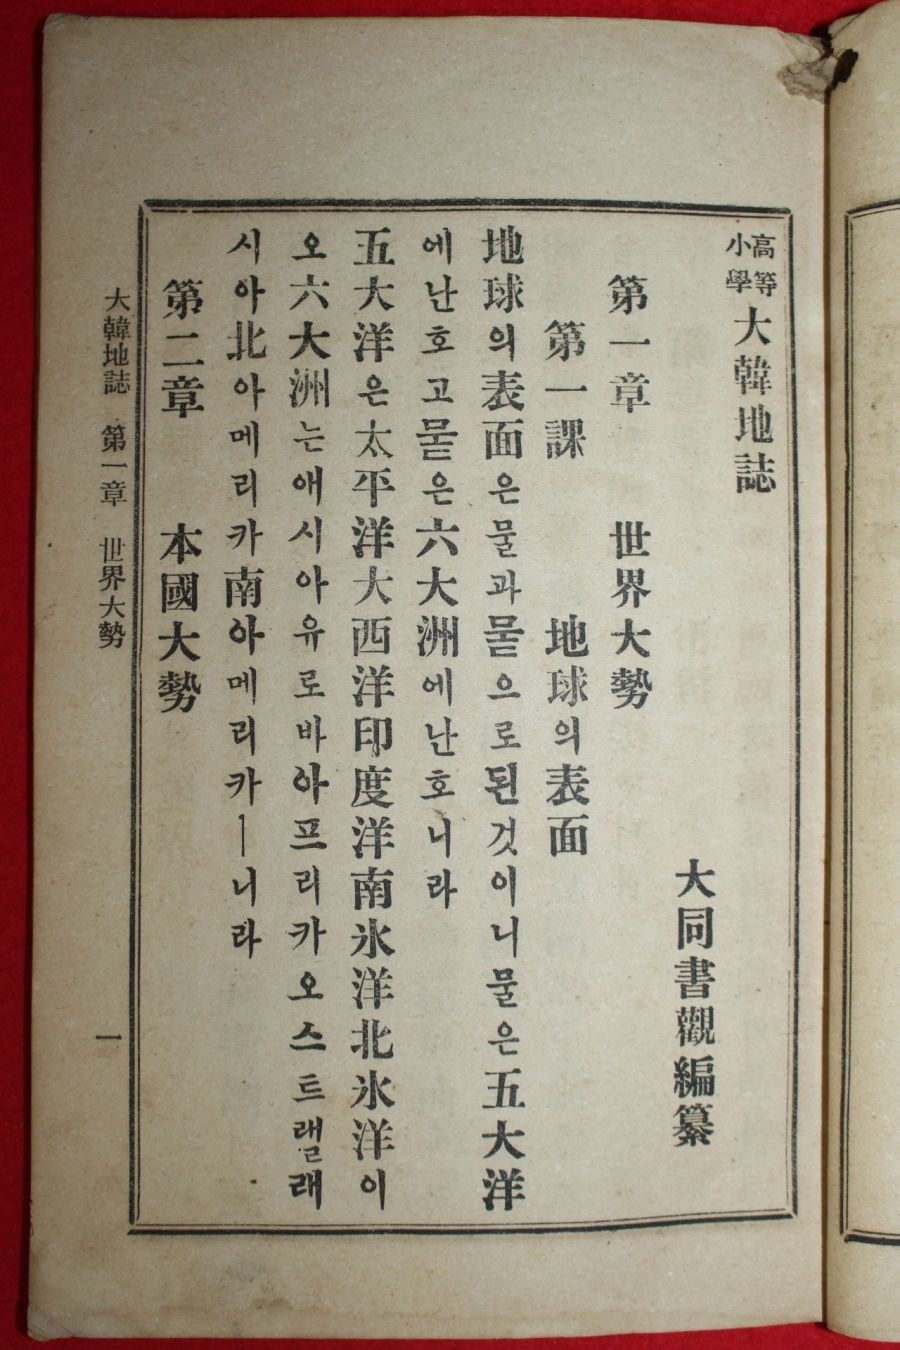 高等小學 大韓地誌
大同書觀編纂
第一章 世界大勢
第一課 地球의表面
地球의表面은물과묻으로된것이니물은五大洋
에난호고묻은六大洲에난호니라
五大洋은太平洋大西洋印度洋南氷洋北氷洋이
오六大洲는애시아유로바아프리카오스트랠래
시아北아메리카南아메리카ㅣ니라
第二章 本國大勢
大韓地誌 第一章 世界大勢 一